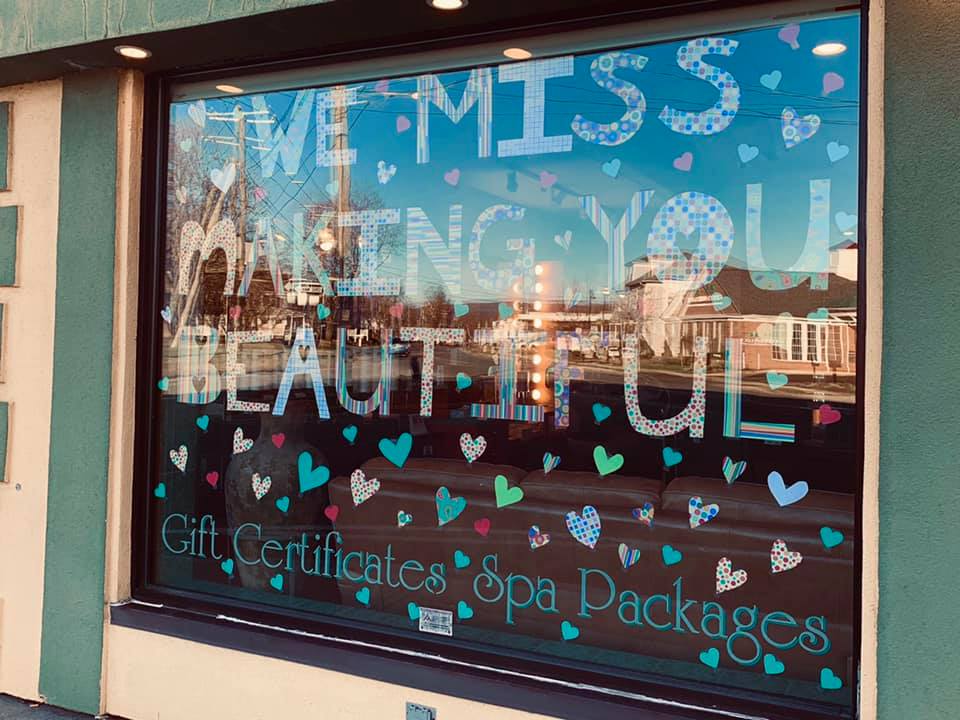 WE MISS
MAKING YOU
BEAUTIFUL
Gift Certificates Spa Packages